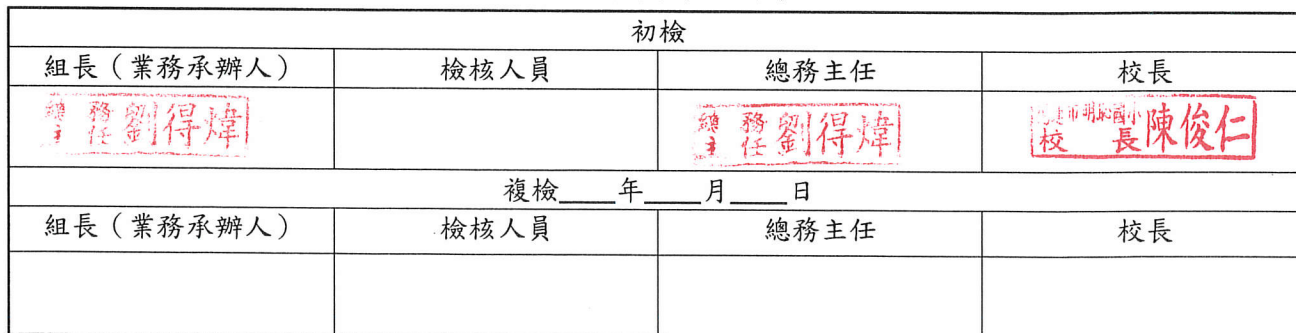 初檢
組長（業務承辦人） 檢核人員 總務主任 校長
總務主任 劉得煒 總務主任 劉得煒 市明恥國小校長 陳俊仁
複檢____年____月____日
組長（業務承辦人） 檢核人員 總務主任 校長